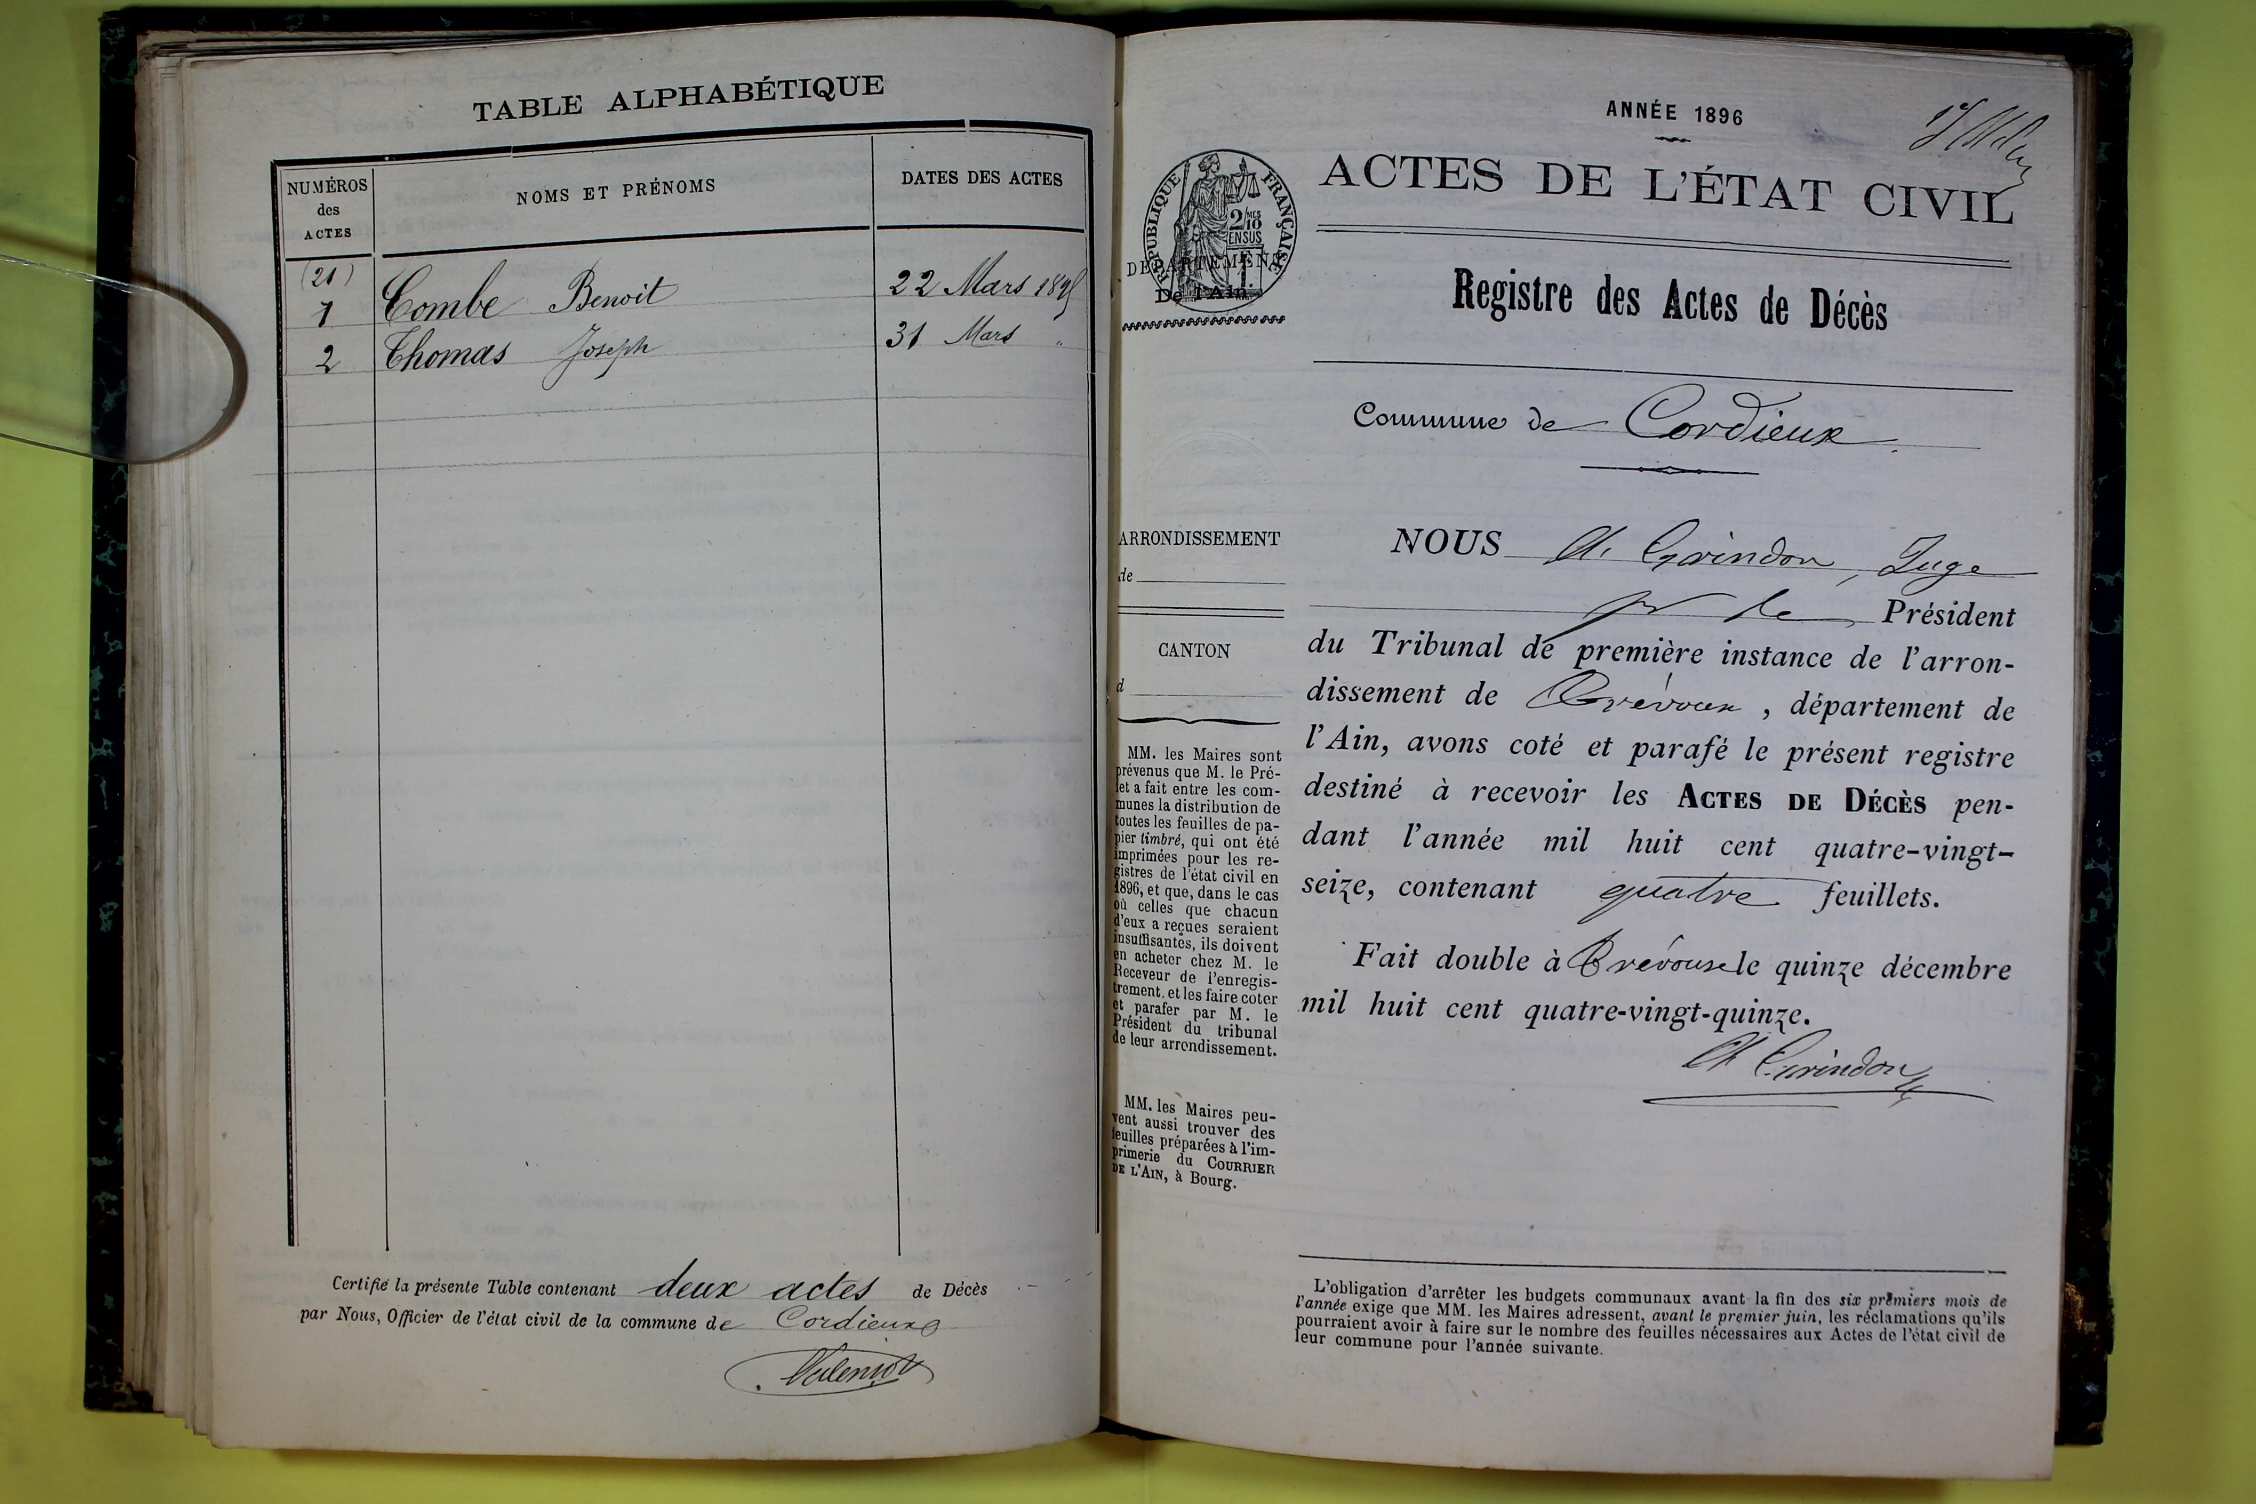 TABLE ALPHABÉTIQUE
NUMÉROS
des
ACTES
NOMS ET PRÉNOMS
DATES DES ACTES
(21)
1 Combe Benoit 22 Mars 1895
2 Thomas Joseph 31 Mars "
Certifié la présente Table contenant deux actes de Décès
par Nous, Officier de l'état civil de la commune de Cordieux
ANNÉE 1896
ACTES DE L'ÉTAT CIVIL
RÉPUBLIQUE FRANÇAISE
2/10 MES
EN SUS
DÉPARTEMENT
De l'Ain
Registre des Actes de Décès
Commune de Cordieux.
ARRONDISSEMENT
de
CANTON
d
MM. les Maires sont
prévenus que M. le Pré-
fet a fait entre les com-
munes la distribution de
toutes les feuilles de pa-
pier timbré, qui ont été
imprimées pour les re-
gistres de l'état civil en
1896, et que, dans le cas
où celles que chacun
d'eux a reçues seraient
insuffisantes, ils doivent
en acheter chez M. le
Receveur de l'enregis-
trement, et les faire coter
et parafer par M. le
Président du tribunal
de leur arrondissement.
MM. les Maires peu-
vent aussi trouver des
feuilles préparées à l'im-
primerie du COURRIER
DE L'AIN, à Bourg.
NOUS Ch. Grindon, Juge
pr le Président
du Tribunal de première instance de l'arron-
dissement de Trévoux, département de
l'Ain, avons coté et parafé le présent registre
destiné à recevoir les ACTES DE DÉCÈS pen-
dant l'année mil huit cent quatre-vingt-
seize, contenant quatre feuillets.
Fait double à Trévoux le quinze décembre
mil huit cent quatre-vingt-quinze.
Ch Grindon
L'obligation d'arrêter les budgets communaux avant la fin des six premiers mois de
l'année exige que MM. les Maires adressent, avant le premier juin, les réclamations qu'ils
pourraient avoir à faire sur le nombre des feuilles nécessaires aux Actes de l'état civil de
leur commune pour l'année suivante.